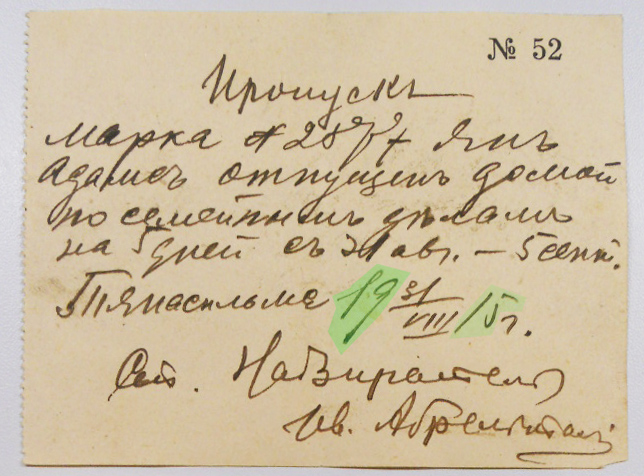 № 52
Пропускъ
марка № Янъ
Адамсъ отпущенъ домой
по семейнымъ дѣламъ
на 5 дней съ 31 авг. – 5 сент.
19 31/VIII 15 г.
Ст. Надзиратель
Ив.